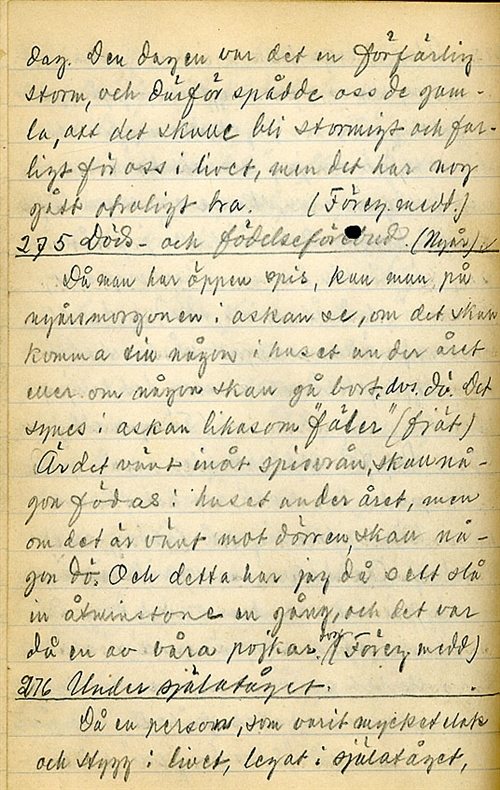 dag. Den dagen var det en förfärlig
storm, och därför spådde oss de gam-
la, att det skulle bli stormigt och far-
ligt för oss i livet, men det har nog
gått otroligt bra. (Föreg. medd.)
275 Döds- och födelseförebud. (Nyår).
Då man har öppen spis, kan man på
nyårsmorgonen i askan se, om det skall
komma till någon i huset under året
eller om någon skall gå bort, dvs. dö. Det
synes i askan likasom "fäter" (fjät)
Är det vänt inåt spisvrån, skall nå-
gon födas i huset under året, men
om det är vänt mot dörren, skall nå-
gon dö. Och detta har jag då sett slå
in åtminstone en gång, och det var
då en av våra pojkar dog. (Föreg. medd).
276 Under själatåget.
Då en person, som varit mycket elak
och stygg i livet, legat i själatåget,